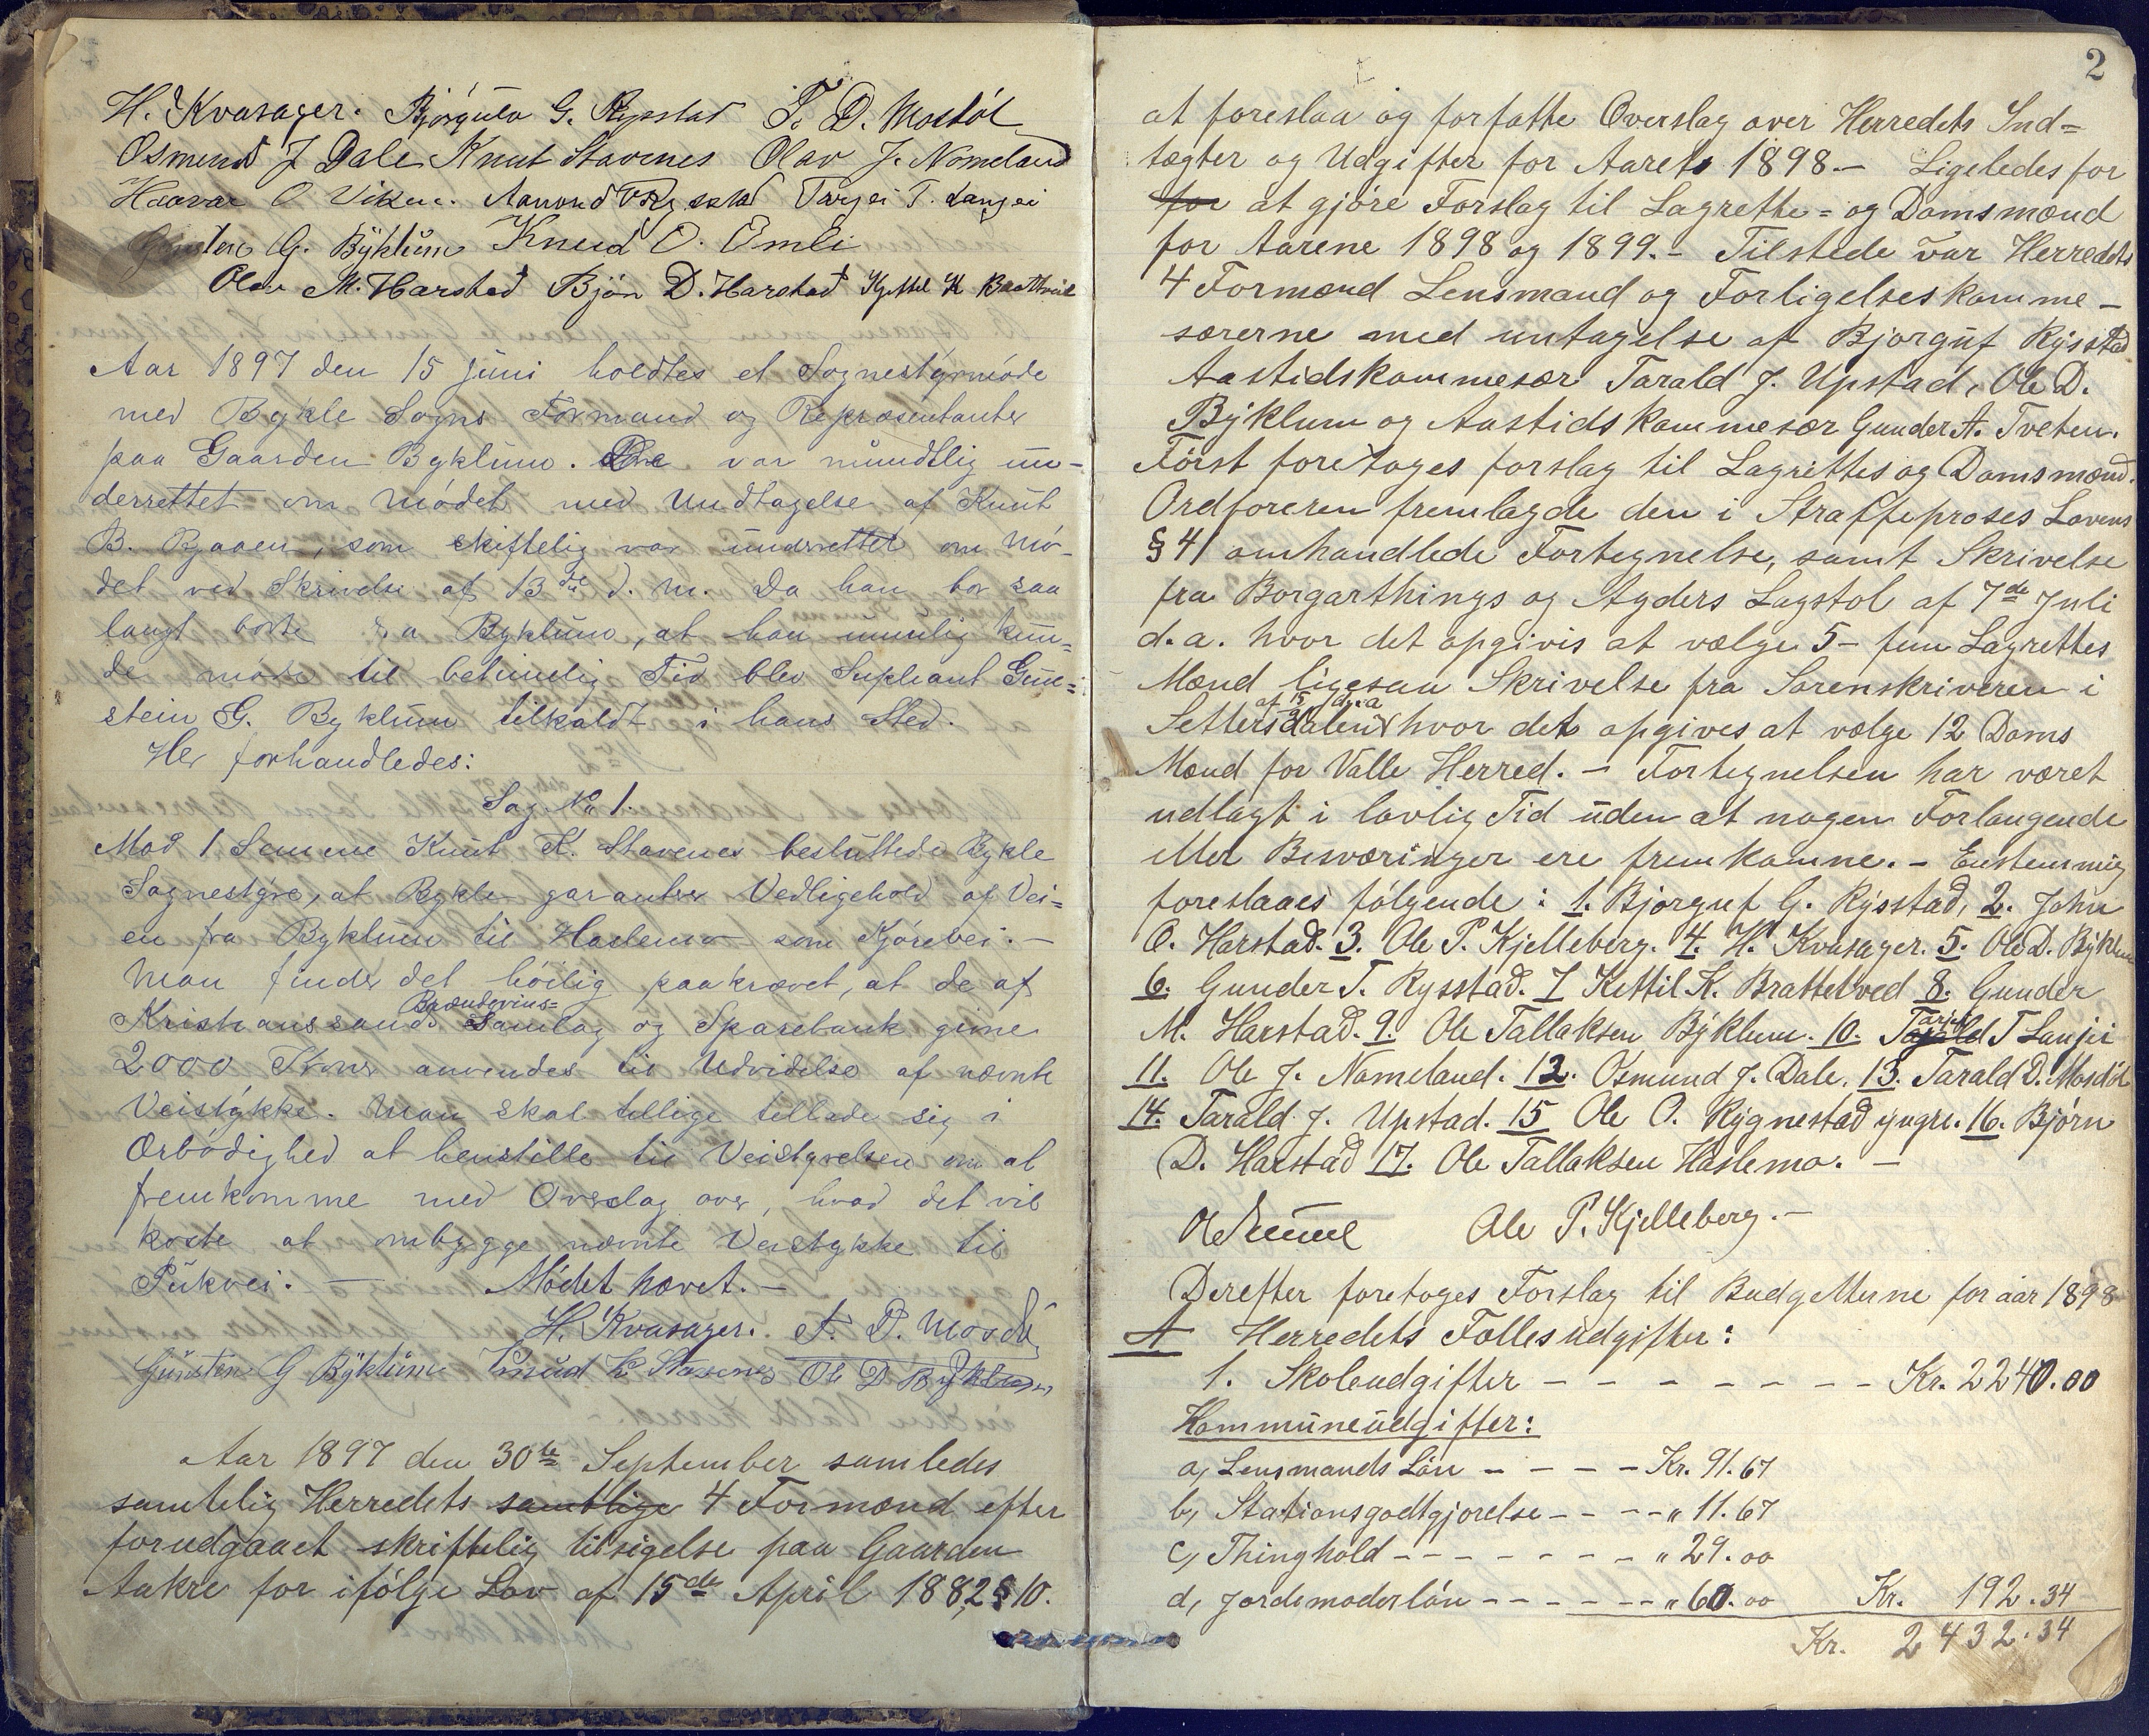 H. Kvasager. Bjórgúlv G. Rysstad T. D. Mosdól
Osmund J Dale Knut Stavenes Olav J. Nomeland
Haavar O Viken. Aanond Rysstad Targei T. Langei
Gunsten G. Býklúm Knud O. Emli
Olav M. Harstad Bjón D. Harstad Kjettel K Brattveid
Aar 1897 den 15 Júni holdtes et Sognestýrmóde
med Bykle Sogns Formænd og Repræsentanter
paa Gaarden Byklúm. De var múndtlig ún-
derrettet om Módet med Undtagelse af Knút
B. Bjaaen, som skiftelig var únderrettet om Mó-
det ved Skrivelse af 13de d. m. Da han bor saa
langt borte fra Byklúm, at han umulig kún-
de móde til betimelig Tid blev Supleant Gún-
stein G. Byklúm tilkaldt i hans Sted.
Her forhandledes:
Sag. No 1.
Mod 1 Stemme Knút K. Stavenes beslúttede Bykle
Sognestýre, at Bykle garanterer Vedligehold af Vei-
en fra Byklúm til Haslemo som Kjórevei. —
Man finder det hóilig paakrævet, at de af
Kristianssands Brændevins= Samlag og Sparebank givne
2000 Kroner anvendes til Udvidelse af nævnte
Veistýkke. Man skal tillige tillade sig i
Ærbódighed at henstille til Veistyrelsen om at
fremkomme med Overslag over, hvad det vil
koste at ombygge nævnte Veistykke til
Púkvei. — Módet hævet. —
H. Kvasager. T. D. Mosdól
Gúnsten G Býklúm Knúd K Stavenes Ole D Býklum
Aar 1897 den 30te September samledes
samtelig Herredets samtlige 4 Formænd efter
forudgaaet skriftelig tilsigelse paa Gaarden
Aakre for ifólge Lov af 15de April 1882 § 10.
2
at foreslaa og forfatte Overslag over Herredets Ind=
tægter og Udgifter for Aaret 1898. — Ligeledes for
for at gjóre Forslag til Lagrette= og Domsmænd
for Aarene 1898 og 1899. — Tilstede var Herredets
4 Formænd Lensmand og Forligelseskomme-
særerne med untagelse af Bjorguf Rýsstad
Aastidskommesær Tarald J. Upstad, Ole D.
Býklum og Aastidskommesær Gunder A. Tveten.
Fórst foretoges forslag til Lagrettes og Domsmænd.
Ordforeren fremlagde den i Straffeproses Lovens
§ 41 omhandlede Fortegnelse, samt Skrivelse
fra Borgarthings og Agders Lagstol af 7de Juli
d.a. hvor det opgivis at vælge 5 - fem Lagrettes
Mænd ligesaa Skrivelse fra Sorenskriveren i
Settersdalen af 15/9 d.a hvor det opgives at vælge 12 Doms
Mænd for Valle Herred. — Fortegnelsen har været
udlagt i lovlig Tid úden at nogen Forlangende
eller Besværinger ere fremkomne. — Enstemmig
foreslaaes fólgende: 1. Bjorguf G. Rýsstad, 2. John
O. Harstad. 3. Ole P. Kjelleberg. 4. H. Kvasager. 5. Ole D. Býklum
6. Gunder T. Rysstad. 7 Kettil K. Brattelved 8. Gunder
M. Harstad. 9. Ole Tallaksen Býklum. 10. Tarjei T Langei
11. Ole J. Nomeland. 12. Osmund J. Dale. 13. Tarald D. Mosdól
14. Tarald J. Upstad. 15 Ole O. Rýgnestad yngre. 16. Bjórn
D. Harstad 17. Ole Tallaksen Haslemo. —
Ole P. Kjelleberg. —
Derefter foretoges Forslag til Budgetterne for aar 1898
A Herredets Fællesúdgifter:
1. Skoleudgifter — — — — — — — — Kr. 2240.00
Kommúneúdgifter:
a, Lensmands Lón — — — — Kr. 91.67
b, Stationsgodtgjorelse — — — " 11.67
c, Thinghold — — — — — — — " 29.00
d, Jordemoderlón — — — — — — " 60.00 Kr. 192.34
Kr. 2432.34